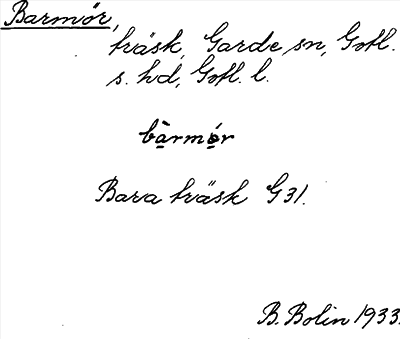 Barmór,
träsk, Garde sn, Gotl.
s. hd, Gotl. l.
bàrmór
Bara träsk G 31.
B. Bolin 1933.